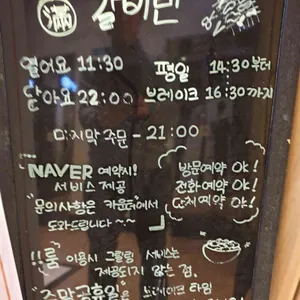 滿 갈비란
열어요 11:30
평일 14:30부터
닫아요 22:00
브레이크 16:30까지
마지막 주문 - 21:00
NAVER 예약시!
서비스 제공
"문의사항은 카운터에서
도와드립니다~~"
방문예약 OK!
전화예약 OK!
단체예약 OK!
!!룸 이용시 그릴링 서비스는
제공되지 않는 점.
"주말공휴일은 브레이크 타임